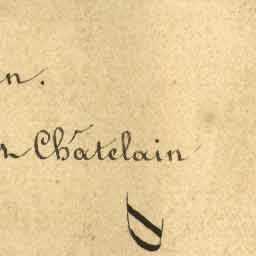 n.
r Châtelain